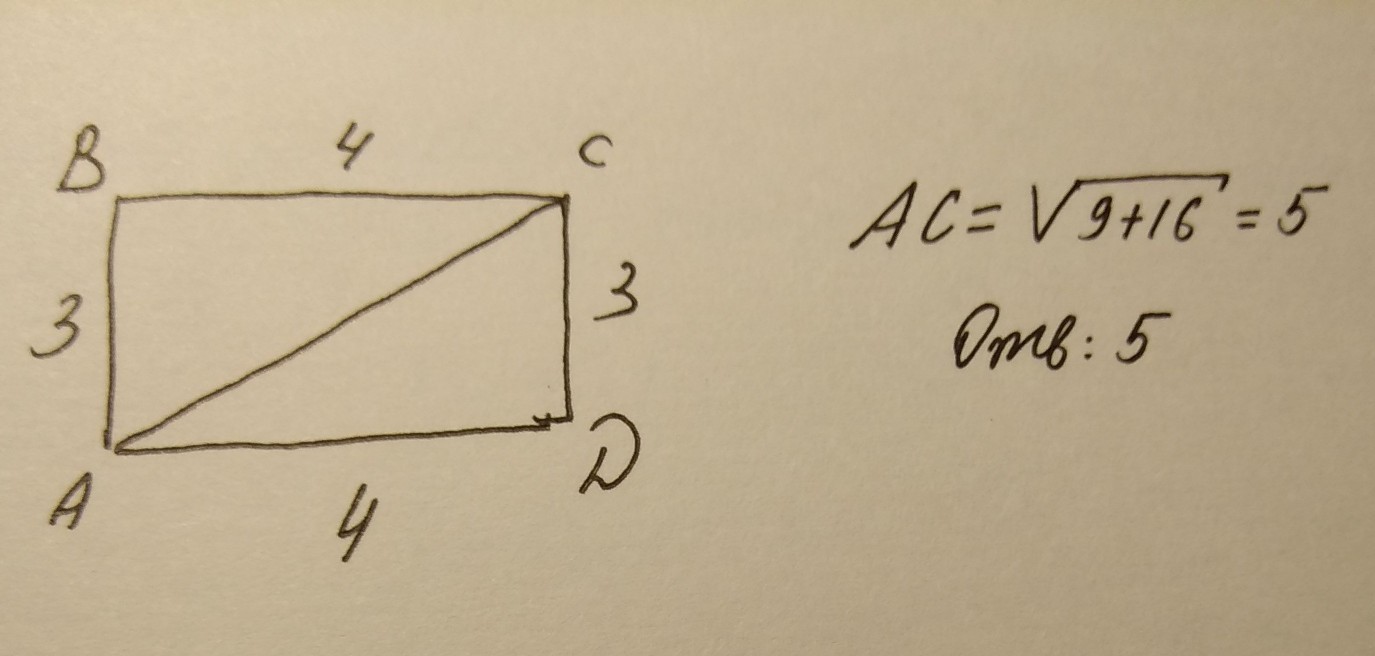 B 4 C
AC = √9+16 = 5
3 3
Отв: 5
A D
4